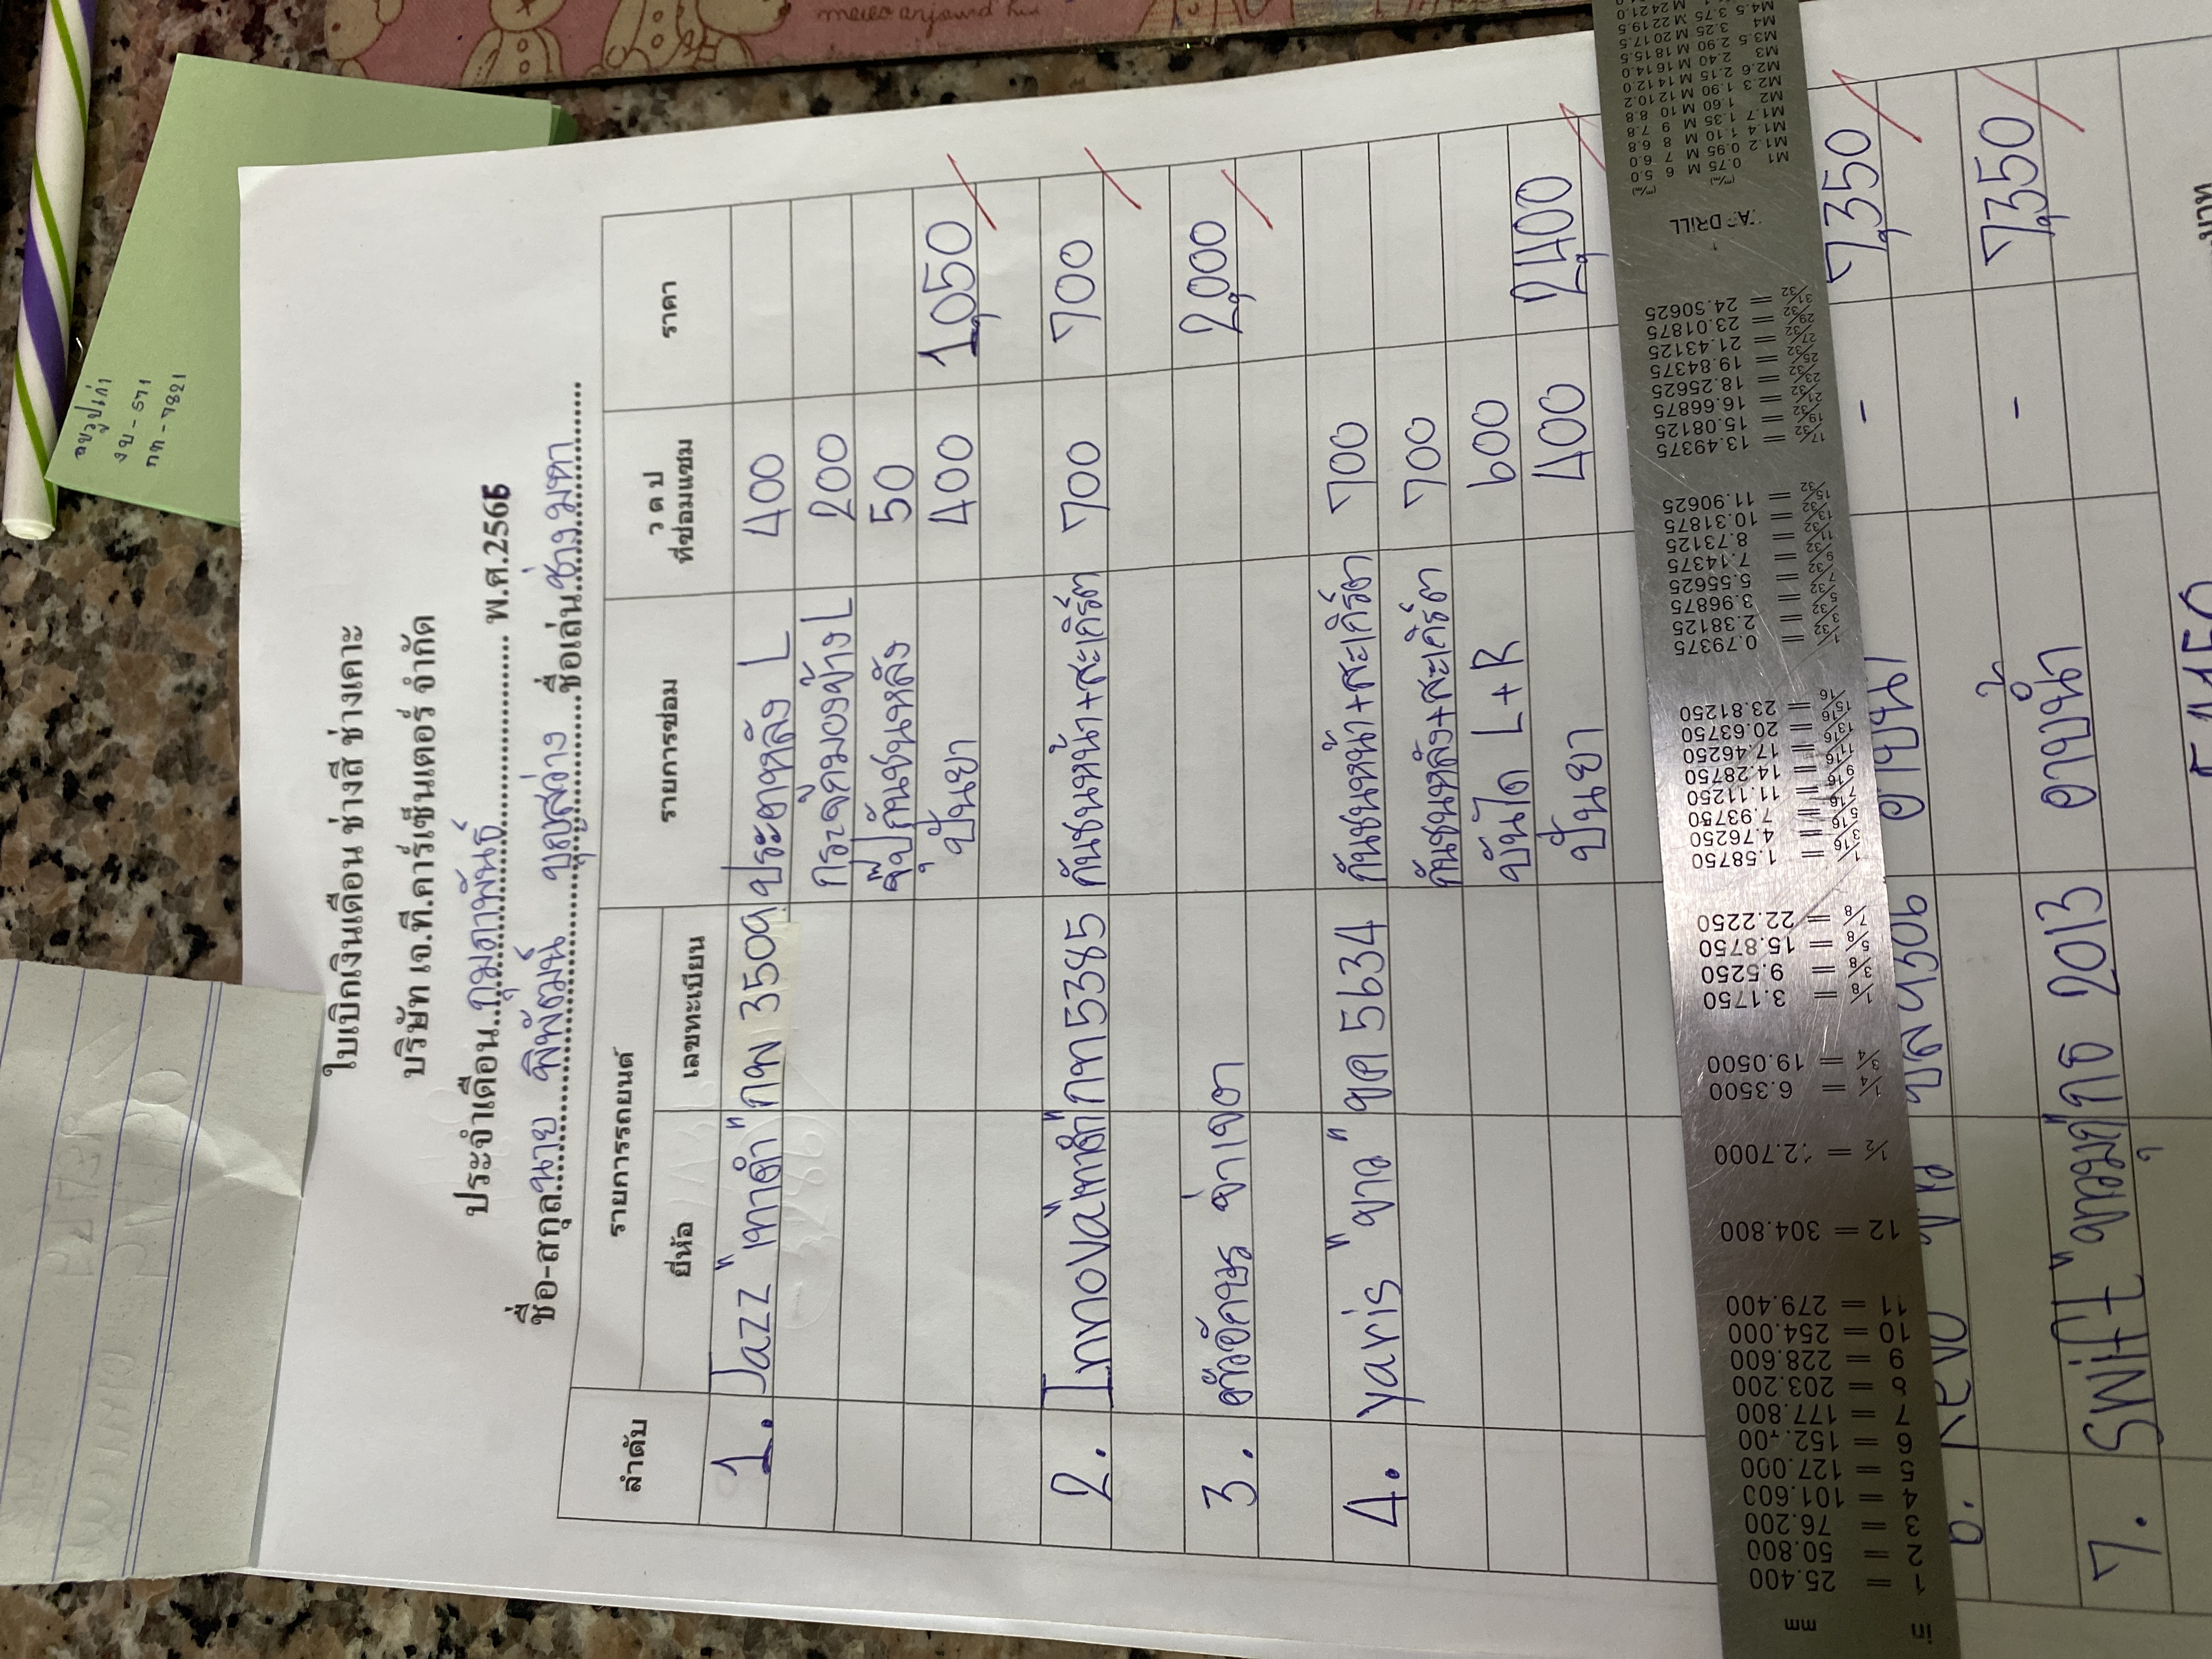 ใบเบิกเงินเดือน ช่างสี ช่างเคาะ
บริษัท เจ.ที.คาร์เซ็นเตอร์ จำกัด
ประจำเดือน..กุมภาพันธ์.......... พ.ศ.2566
ชื่อ-สกุล..นาย พิพัฒน์ บุญสว่าง...ชื่อเล่น..ช่างมหา......
ลำดับ รายการรถยนต์ รายการซ่อม ว ด ป ที่ซ่อมแซม ราคา
ยี่ห้อ เลขทะเบียน
1. Jazz "เทาดำ" กพ 3509 ประตูหลัง L 400
กระจกมองข้าง L 200
จุ๊ปกันชนหลัง 50
ปั่นยา 400 1,050
2. Innova "เทาดำ" กท 5385 กันชนหน้า+สะเกิร์ต 700 700
3. ตัวอักษร จ่าเจต 2,000
4. yaris "ขาว" ขค 5634 กันชนหน้า+สะเกิร์ต 700
กันชนหลัง+สะเกิร์ต 700
บันได L+R 600
ปั่นยา 400 2,400
6. Revo 9306 อาบน้ำ - 7,350
7. SWift "ขาวมุกใจ 2013 อาบน้ำ - 7,350
บาท
งบ - 571
กท - 7821
in mm
1 = 25.400
2 = 50.800
3 = 76.200
4 = 101.600
5 = 127.000
6 = 152.400
7 = 177.800
8 = 203.200
9 = 228.600
10 = 254.000
11 = 279.400
12 = 304.800
1/2 = 12.7000
1/4 = 6.3500
3/4 = 19.0500
1/8 = 3.1750
3/8 = 9.5250
5/8 = 15.8750
7/8 = 22.2250
1/16 = 1.58750
3/16 = 4.76250
5/16 = 7.93750
7/16 = 11.11250
9/16 = 14.28750
11/16 = 17.46250
13/16 = 20.63750
15/16 = 23.81250
1/32 = 0.79375
3/32 = 2.38125
5/32 = 3.96875
7/32 = 5.55625
9/32 = 7.14375
11/32 = 8.73125
13/32 = 10.31875
15/32 = 11.90625
17/32 = 13.49375
19/32 = 15.08125
21/32 = 16.66875
23/32 = 18.25625
25/32 = 19.84375
27/32 = 21.43125
29/32 = 23.01875
31/32 = 24.50625
TAP DRILL
M1 0.75 M 6 5.0
M1.2 0.95 M 7 6.0
M1.4 1.10 M 8 6.8
M1.7 1.35 M 9 7.8
M2 1.60 M 10 8.8
M2.3 1.90 M 12 10.2
M2.6 2.15 M 14 12.0
M3 2.40 M 16 14.0
M3.5 2.90 M 18 15.5
M4 3.25 M 20 17.5
M4.5 3.75 M 22 19.5